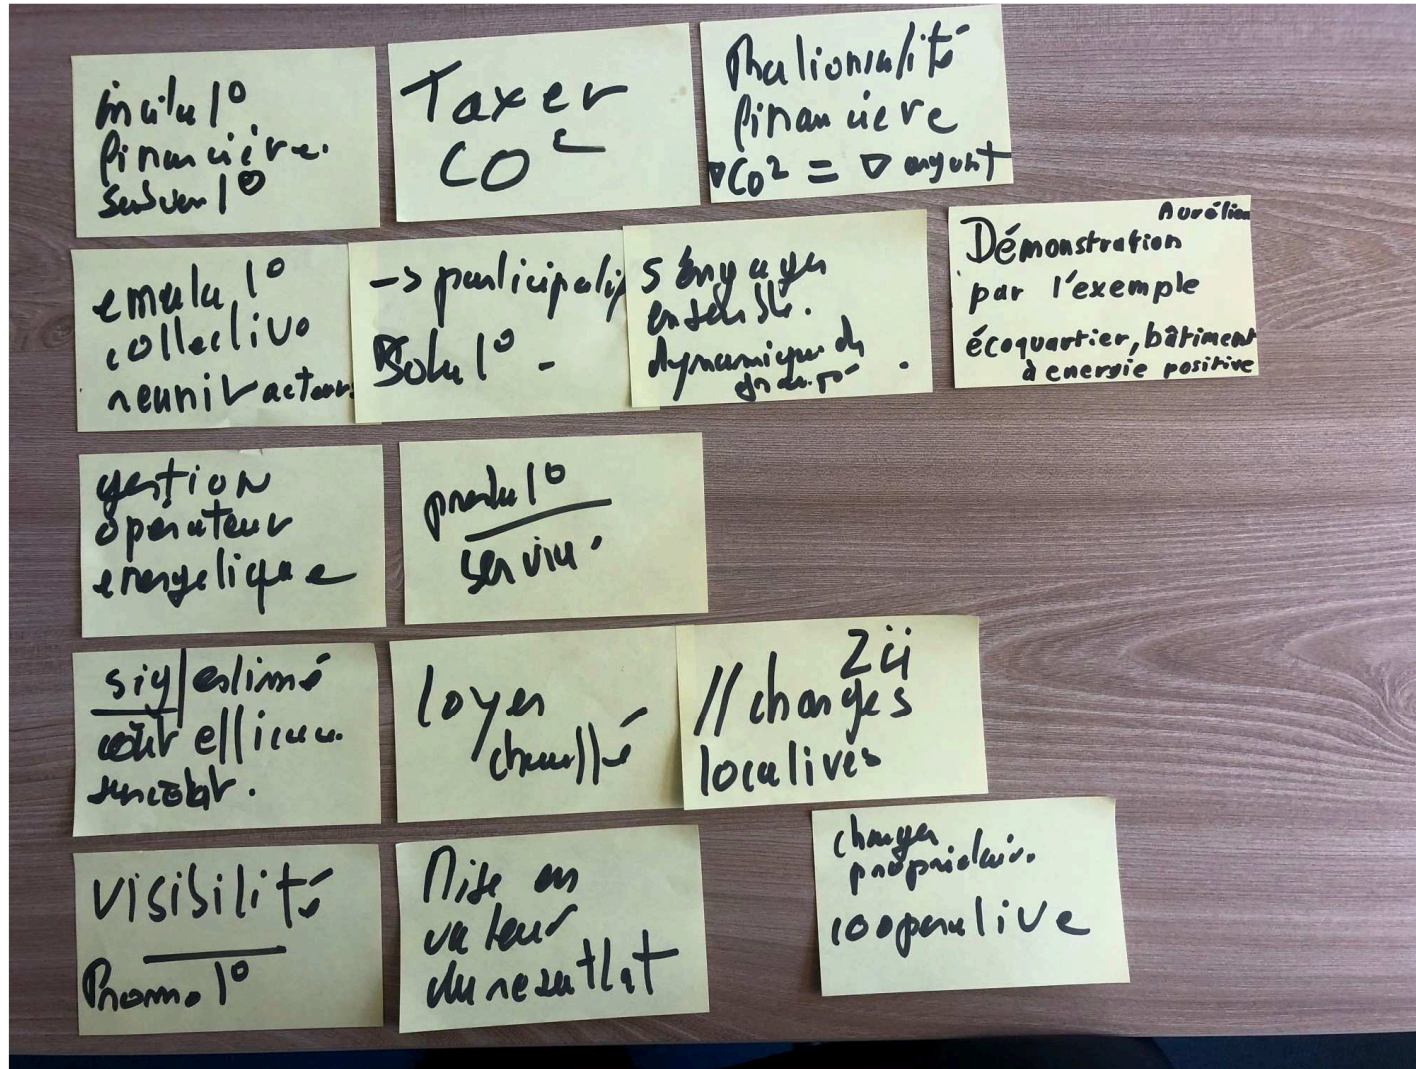 incita1°
financière.
subven1°
Taxer
CO²
Rationalité
financière
∇CO² = ∇ argent
emula1°
collective
réunir acteurs
-> participatif
Solu1° -
s'engager
ensemble.
dynamique de
Aurélien
Démonstration
par l'exemple
écoquartier, bâtiment
à energie positive
gestion
operateur
energetique
produ1°
service
sig/estimé
coût efficacı
loyer
chauffé
//charges
locatives
visibilité
Promo1°
Mise en
valeur
du resultlat
changer
propriétair.
cooperative